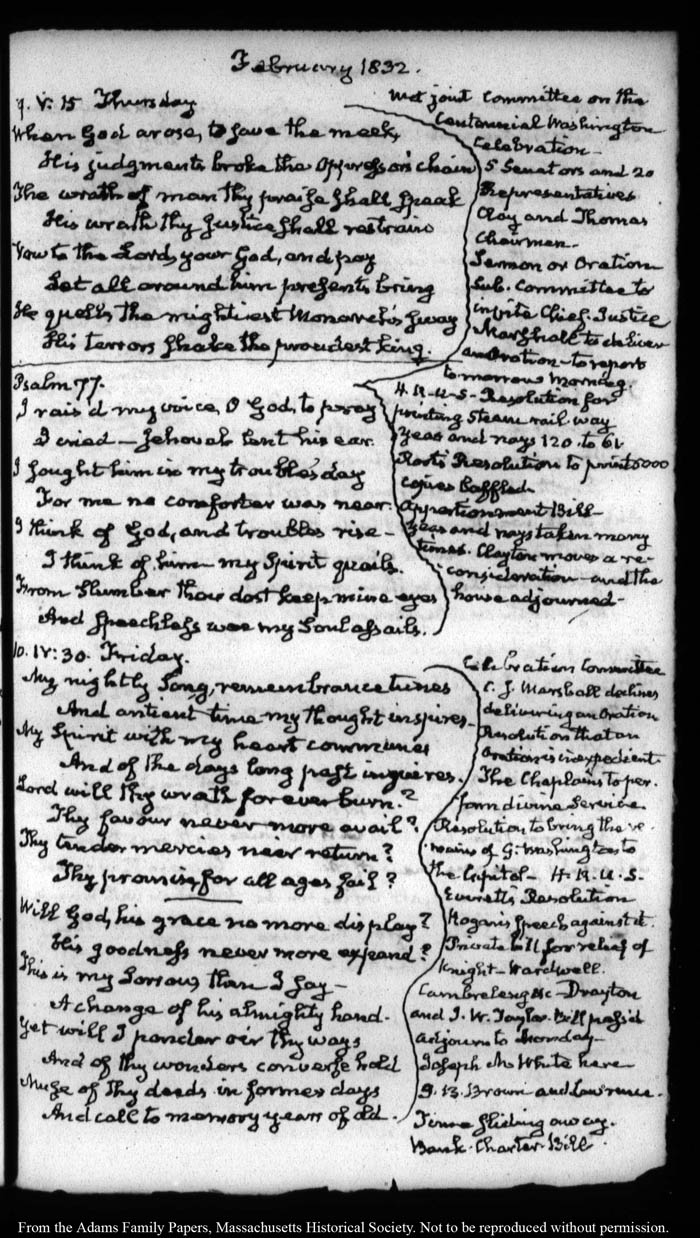 February 1832.
9. V: 15 Thursday
When God arose, to save the meek,
His judgments broke the Oppressor's chain
The wrath of man thy praise shall speak
His wrath thy Justice shall restrain
Vow to the Lord, your God, and pay
Let all around him presents bring
He quells the mightiest Monarch's sway
His terrors shake the proudest King.
Met joint Committee on the
Centennial Washington
Celebration—
5 Senators and 20
Representatives
Clay and Thomas
Chairmen—
Sermon or Oration
Sub. Committee to
invite Chief Justice
Marshall to deliver
an Oration—to report
tomorrow Morning.
Psalm 77.
I rais'd my voice, O God, to pray
I cried—Jehovah lent his ear.
I sought him in my troubles day
For me no comforter was near.
I think of God, and troubles rise—
I think of him—my Spirit quails.
From Slumber thou dost keep mine eyes
And Speechless woe my Soul assails.
H.R.U.S—Resolution for
printing Steam rail way
Yeas and nays 120 to 61
Root's Resolution to print 6000
copies baffled
Apportionment Bill—
Yeas and nays taken many
times. Clayton moves a re-
consideration—and the
house adjourned—
10. IV: 30. Friday.
My nightly Song, remembrance tunes
And antient time my thought inspires—
My Spirit with my heart communes
And of the days long past inquires.
Lord will thy wrath forever burn?
Thy favour never more avail?
Thy tender mercies ne'er return?
Thy promise, for all ages fail?
Will God, his grace no more display?
His goodness never more expand?
This is my Sorrow, then I say—
A change of his almighty hand.
Yet will I ponder o'er thy ways
And of thy wonders converse hold
Muse of Thy deeds in former days
And call to memory years of old.
Celebration Committee
C. J. Marshall declines
delivering an Oration
Resolution that an
Oration is inexpedient.
The Chaplains to per-
form divine Service
Resolution to bring the re-
mains of G. Washington to
the Capitol—H.R.U.S.
Everett's Resolution
Hogan's speech against it.
Private bill for relief of
Knight—Wardwell.
Cambreleng &c—Drayton
and J. W. Taylor. Bill pass'd
Adjourn to Monday—
Joseph M. White here
Brown and Lawrence.
Time sliding away.
Bank-Charter-Bill.
From the Adams Family Papers, Massachusetts Historical Society. Not to be reproduced without permission.